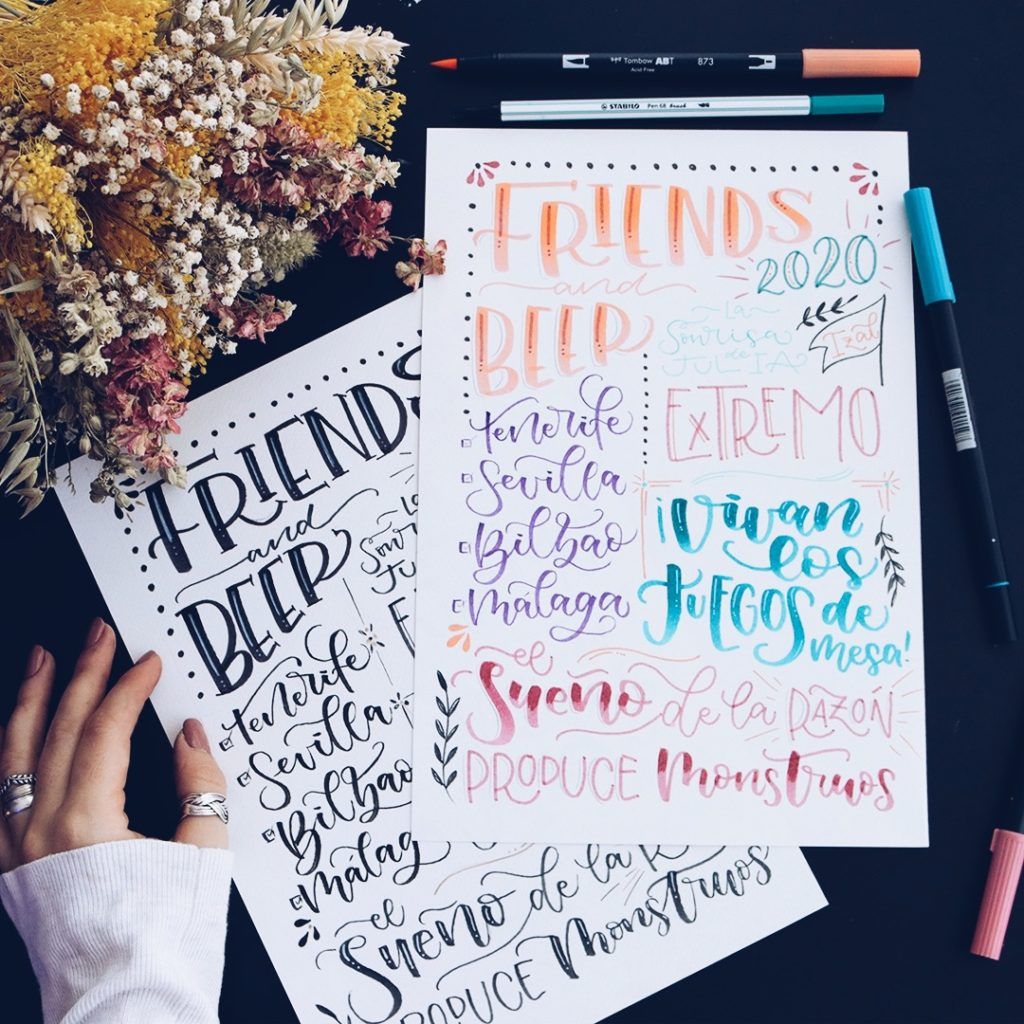 Tombow ABT 873
Acid Free
STABILO Pen 68 brush
FRIENDS
2020
and
BEER
LA
SONRISA
de
JULIA
Izal
EXTREMO
Tenerife
Sevilla
Bilbao
Málaga
¡Vivan
los
JUEGOS de
mesa!
el
Sueño de la RAZÓN
PRODUCE Monstruos
FRIENDS
and
BEER
LA
SONR
JU
E
Tenerife
Sevilla
Bilbao
Málag
el
Sueño de la R
PRODUCE Monstruos